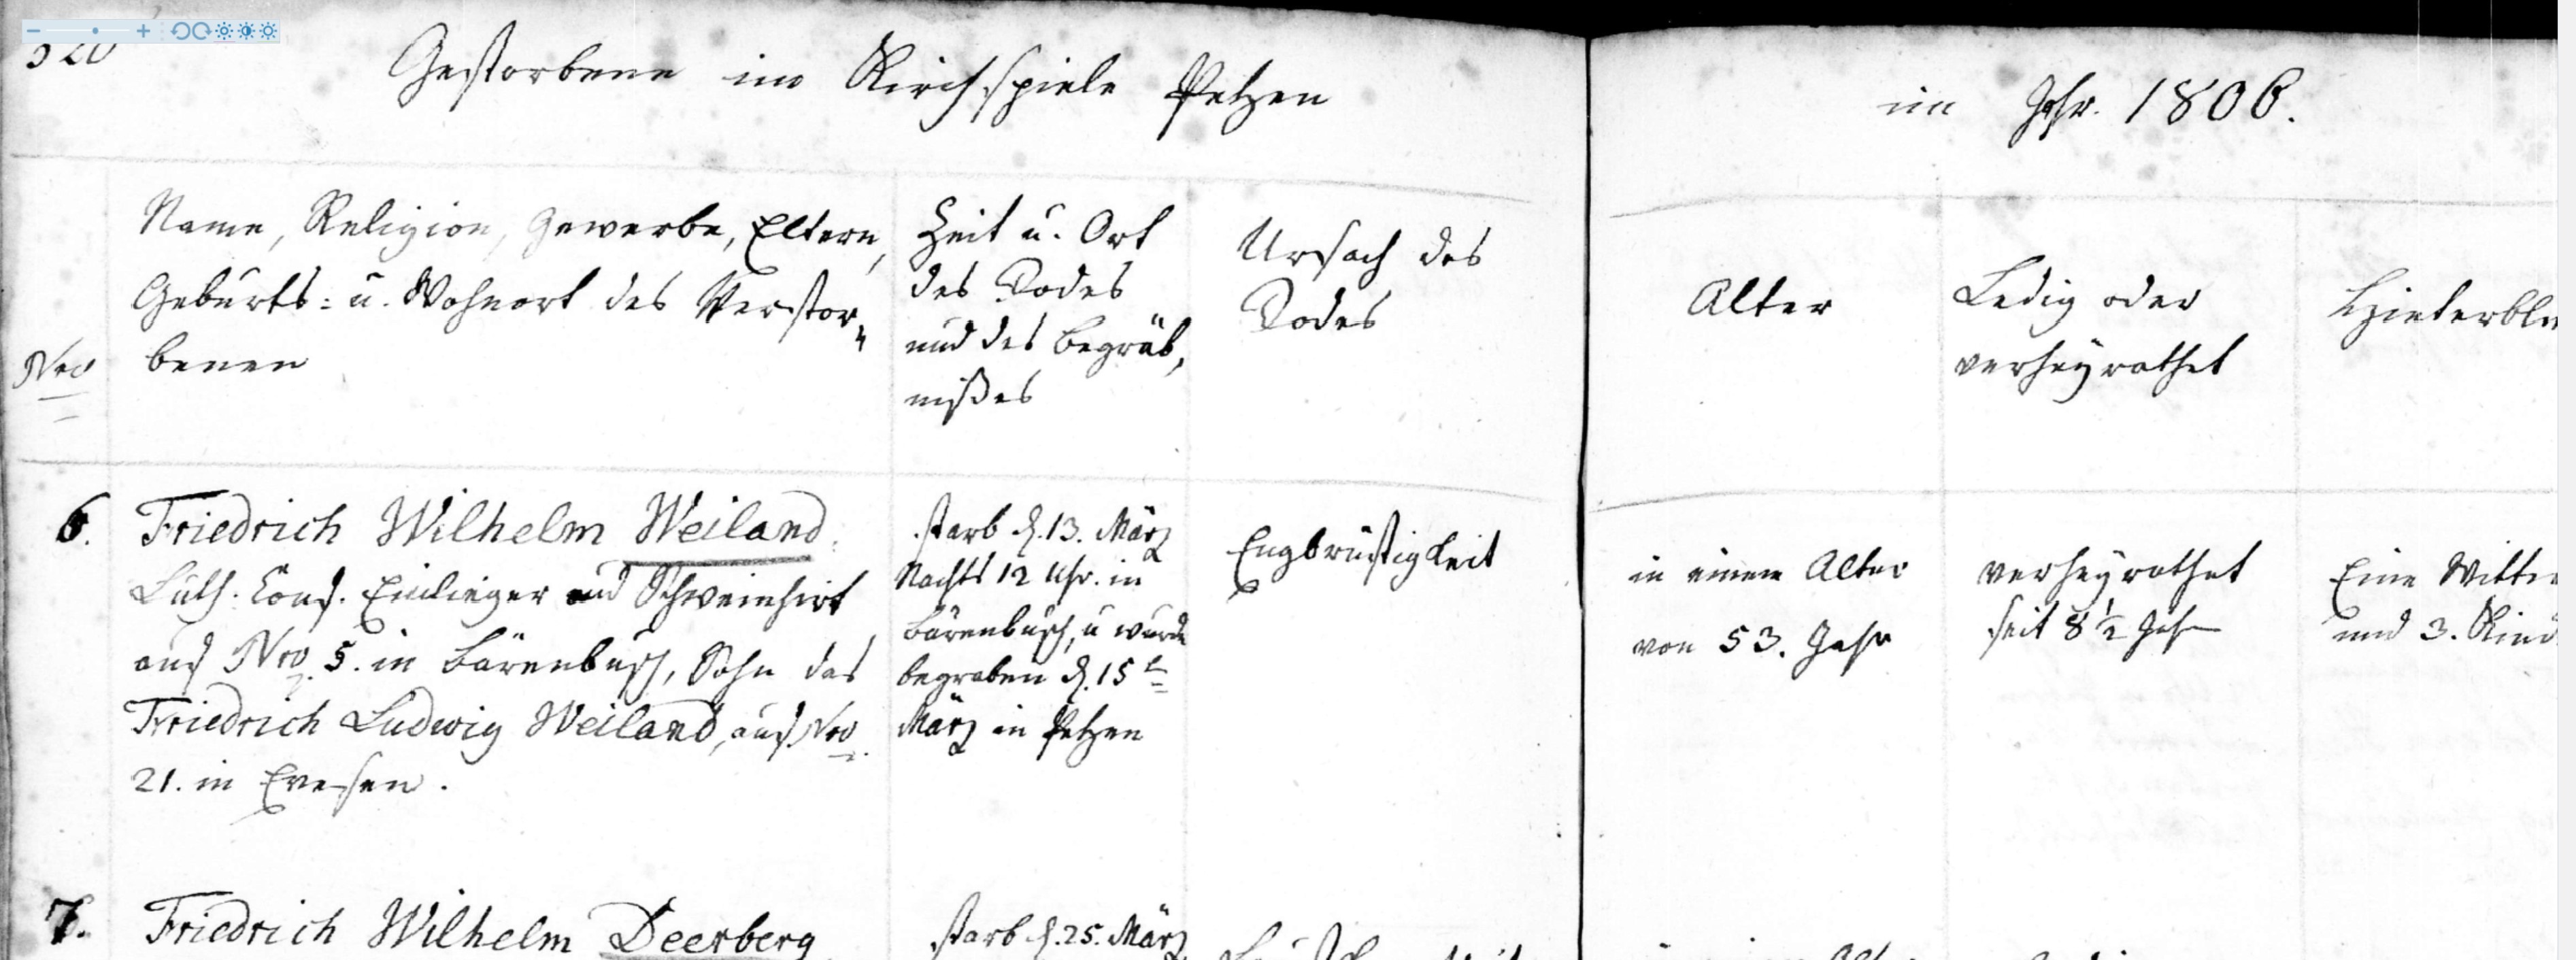 320
Gestorbene im Kirchspiele Petzen
im Jahr. 1806.
Nro
Name, Religion, Gewerbe, Eltern,
Geburts- u. Wohnort des Verstor-
benen
Zeit u. Ort
des Todes
und des Begräb-
nißes
Ursach des
Todes
Alter
Ledig oder
verheyrathet
Hinterble
6.
Friedrich Wilhelm Weiland.
Luth. Conf. Einlieger und Schweinhirt
aus Nro. 5. in Bärenbusch, Sohn des
Friedrich Ludwig Weiland, aus Nro.
21. in Evesen.
starb d. 13. März
Nachts 12 Uhr. in
Bärenbusch, u wurde
begraben d. 15t
März in Petzen
Engbrüstigkeit
in einem Alter
von 53. Jahr
verheyrathet
seit 8 1/2 Jahr
Eine Wittw
und 3. Kind
7.
Friedrich Wilhelm Deerberg
starb d. 25. März